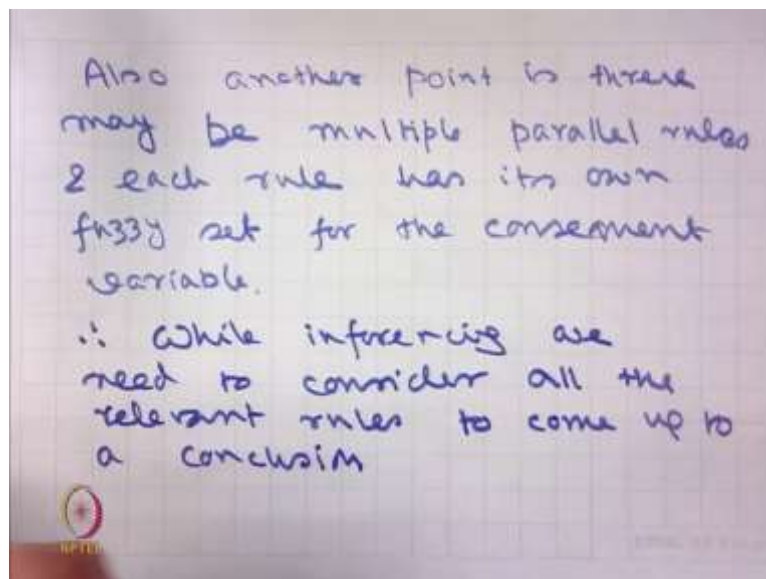 Also another point is threre
may be multiple parallel rules
& each rule has its own
fuzzy set for the consequent
variable.
∴ While inferencing we
need to consider all the
relevant rules to come up to
a conclusion
NPTEL